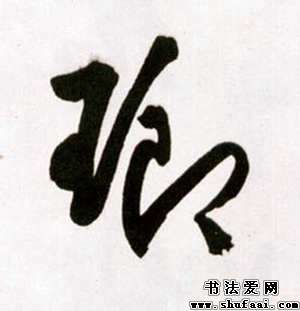 瑯
书法爱网
www.shufaai.com